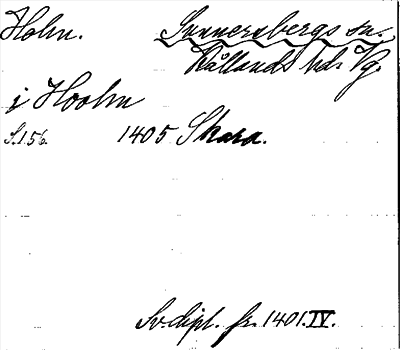 Holm. Sunnersbergs sn.
Kållands hd. Vg.
j Hoolm
S. 156. 1405 Skara.
Sv. dipl. fr. 1401. IV.